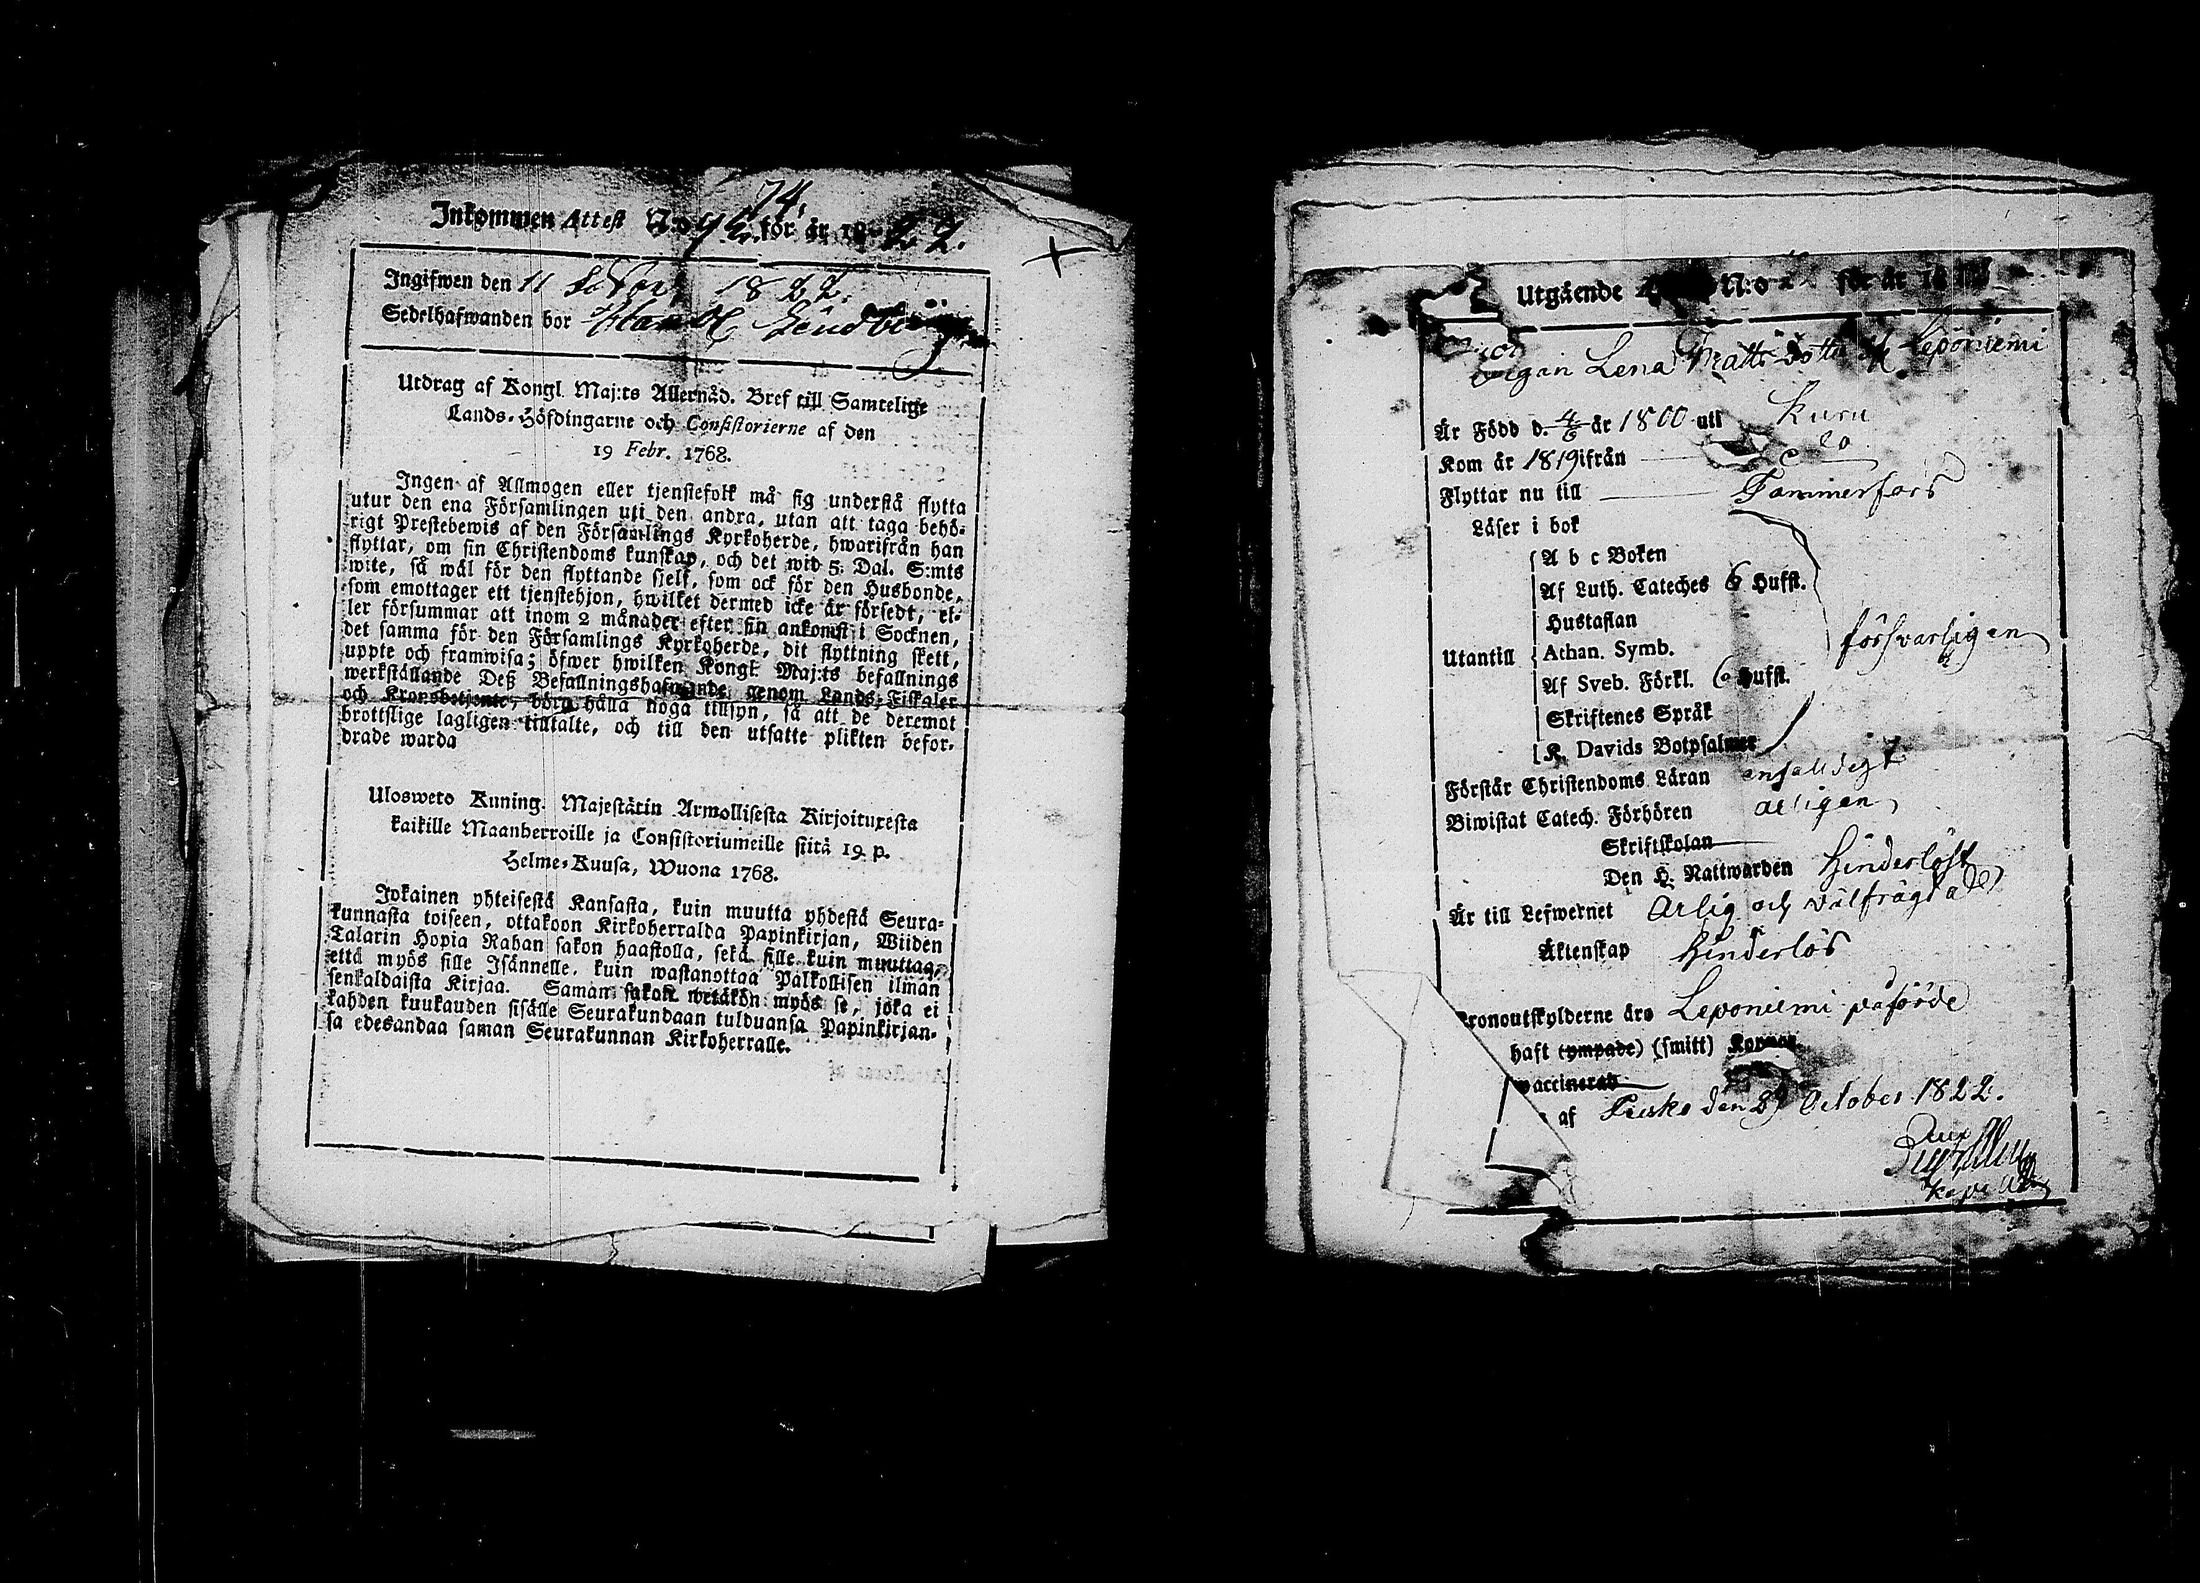 74.
Inkommen Attest N:o 42 för år 1822.
Ingifwen den 11 1822.
Sedelhafwanden bor
Utdrag af Kongl. Maj:ts Allernåd. Bref till Samtelige
Lands-Höfdingarne och Consistorierne af den
19 Febr. 1768.
Ingen af Allmogen eller tjenstefolk må sig understå flytta
utur den ena Församlingen uti den andra, utan att taga behö-
rigt Prestebewis af den Församlings Kyrkoherde, hwarifrån han
flyttar, om sin Christendoms kunskap, och det wid 5: Dal. S:mts
wite, så wäl för den flyttande sjelf, som ock för den Husbonde,
som emottager ett tjenstehjon, hwilket dermed icke är försedt, el-
ler försummar att inom 2 månader efter sin ankomst i Socknen,
det samma för den Församlings Kyrkoherde, dit flyttning skett,
uppte och framwisa; öfwer hwilken Kongl. Maj:ts befallnings
werkställande Deß Befallningshafwande genom Lands-Fiskaler
och Kronobetjente, böra hålla noga tillsyn, så att de deremot
brottslige lagligen tilltalte, och till den utsatte plikten befor-
drade warda
Ulosweto Kuning. Majestätin Armollisesta Kirjoituxesta
kaikille Maanherroille ja Consistoriumeille siitä 19 p.
Helme-Kuusa, Wuona 1768.
Jokainen yhteisestä Kansasta, kuin muutta yhdestä Seura-
kunnasta toiseen, ottakoon Kirkoherralda Papinkirjan, Wiiden
Talarin Hopia Rahan sakon haastolla, sekä sille kuin muuttaa,
että myös sille Isännelle, kuin wastanottaa Palkollisen ilman
senkaldaista Kirjaa. Saman sakon wetäkön myös se, joka ei
kahden kuukauden sisälle Seurakundaan tulduansa Papinkirjan-
sa edesandaa saman Seurakunnan Kirkoherralle.
Utgående N:o för år 18
Pigan Lena Matts dotter Leponiemi
Är Född d. 4/6 år 1800 uti Kuru
Kom år 1819 ifrån
Flyttar nu till Tammerfors
Läser i bok
A b c Boken
Af Luth. Cateches 6 Hufst.
Hustaflan
Utantill Athan. Symb. försvarligen
Af Sveb. Förkl. 6 Hufst.
Skriftenes Språk
K. Davids Botpsalmer
Förstår Christendoms Läran enfaldigt
Biwistat Catech. Förhören årligen
Skriftskolan
Den H. Nattwarden hinderlöst
Är till Lefwernet Ärlig och välfrägdad
Äktenskap hinderlös
Kronoutskylderne äro Leponiemi påförde
haft (ympade) (smitt) Koppor.
vaccinerad
af den 29 October 1822.